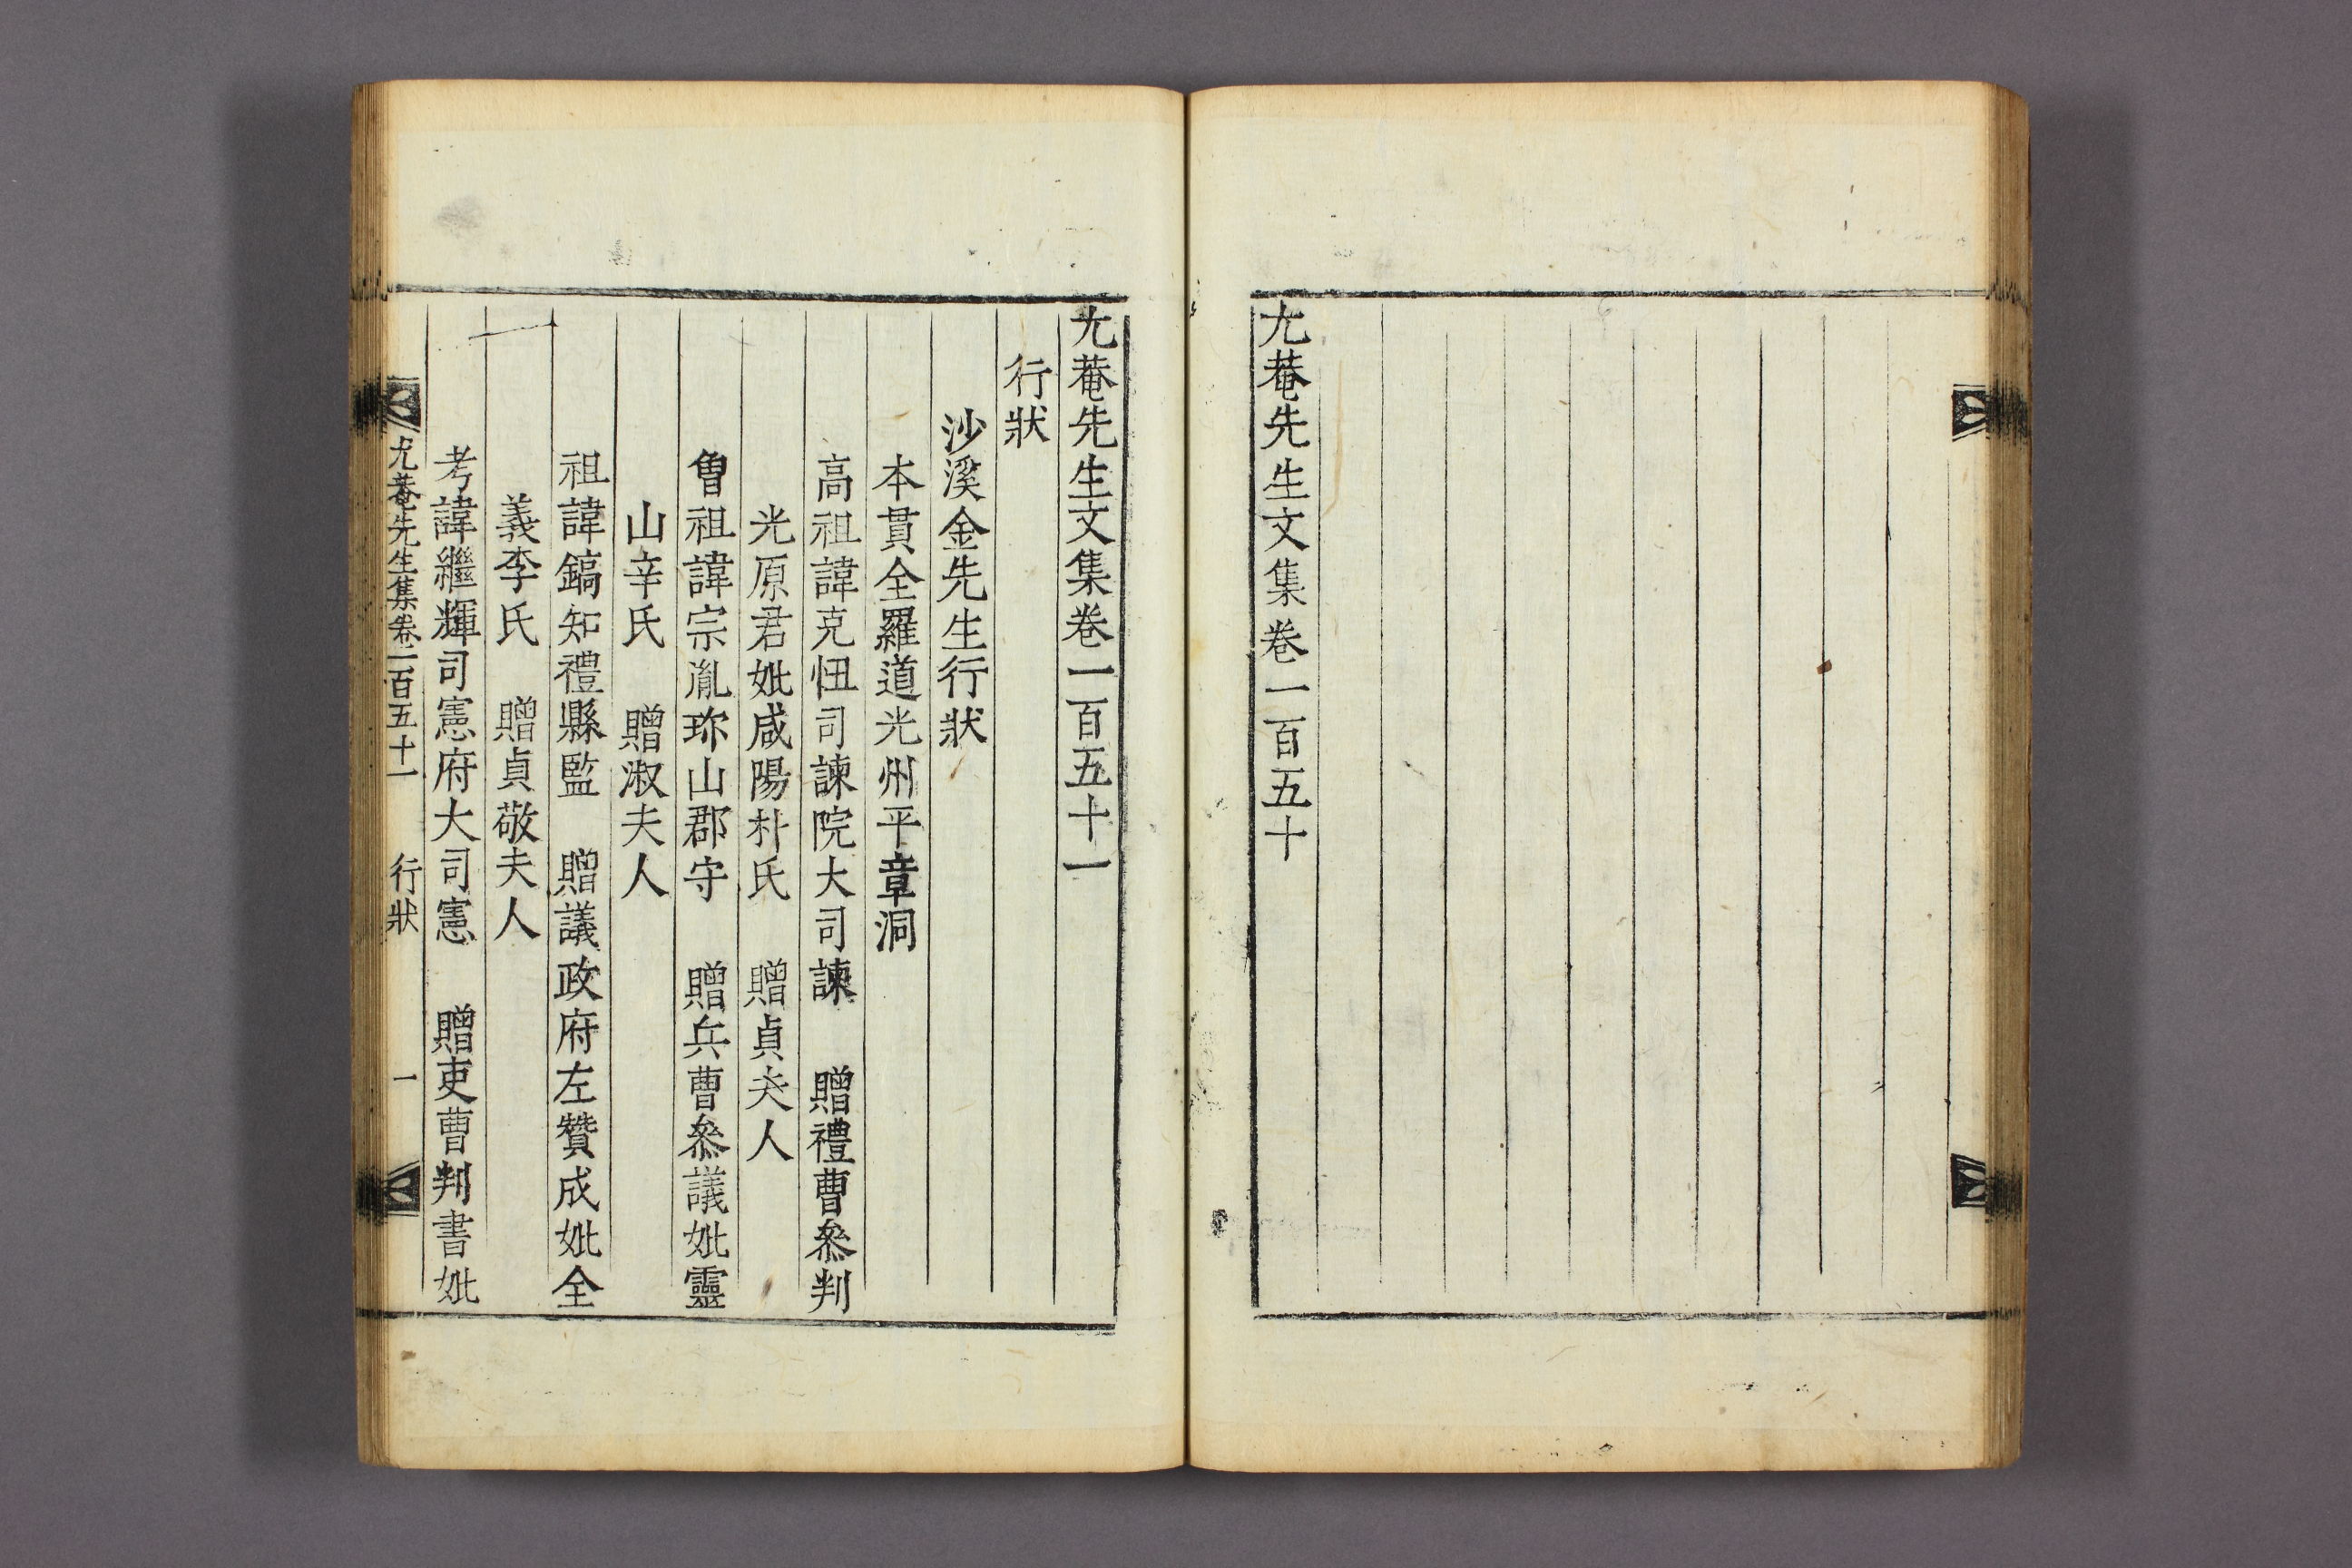 尤菴先生文集卷一百五十
尤菴先生文集卷一百五十一
行狀
沙溪金先生行狀
本貫全羅道光州平章洞
高祖諱克忸司諫院大司諫　贈禮曹叅判
光原君妣咸陽朴氏　贈貞夫人
曾祖諱宗胤珎山郡守　贈兵曹叅議妣靈
山辛氏　贈淑夫人
祖諱鎬知禮縣監　贈議政府左贊成妣全
義李氏　贈貞敬夫人
考諱繼輝司憲府大司憲　贈吏曹判書妣
尤菴先生集卷一百五十一　行狀　一